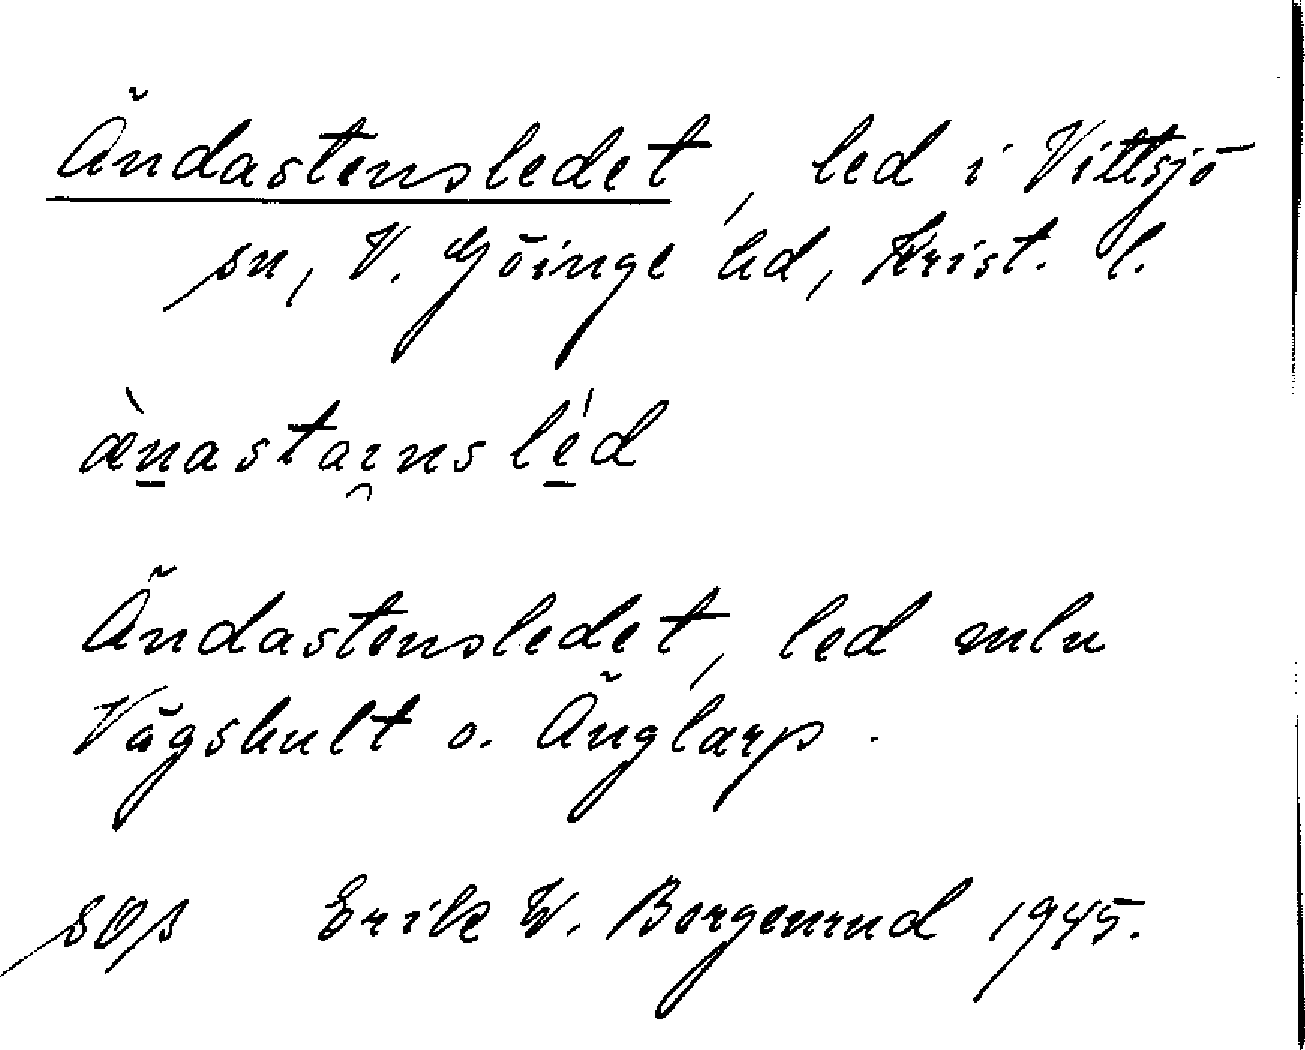 Ändastensledet, led i Vittsjö
sn, V. Göinge hd, Krist. l.
æ̀n̲astai̯nslé̲d
Ändastensledet, led mln
Vägshult o. Änglarp.
sOs Erik W. Borgenrud 1945.